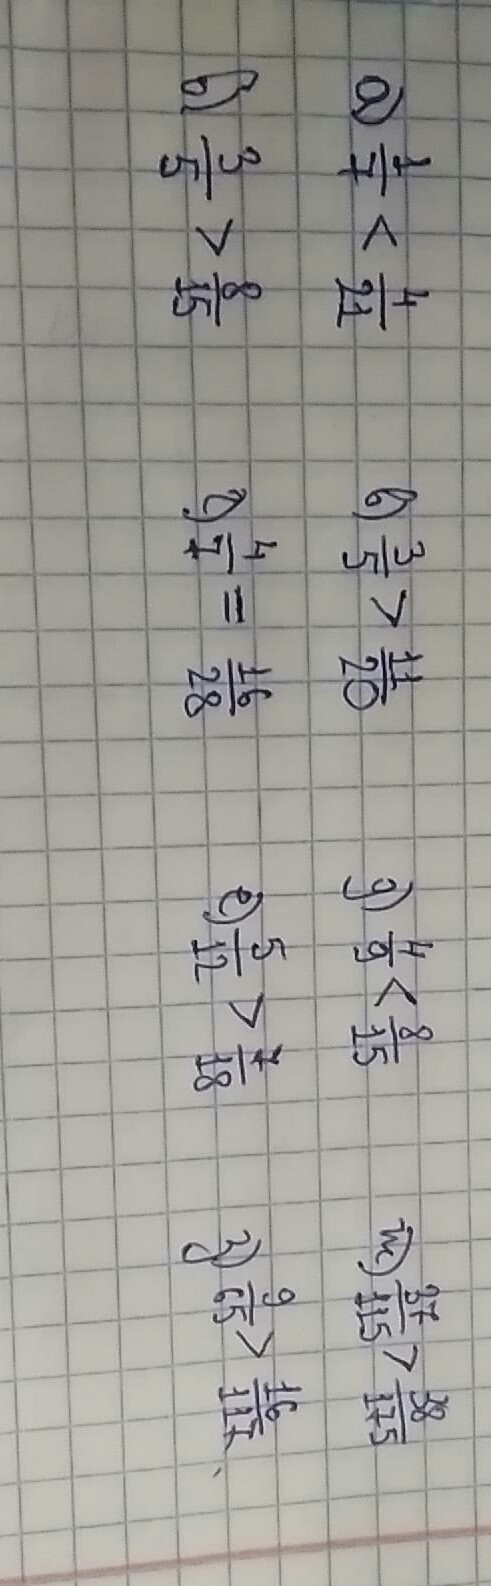 а) 1/7 < 4/21 в) 3/5 > 11/20 д) 4/9 < 8/15 ж) 37/115 > 38/175
б) 3/5 > 8/15 г) 4/7 = 16/28 е) 5/12 > 7/18 з) 9/65 > 16/117